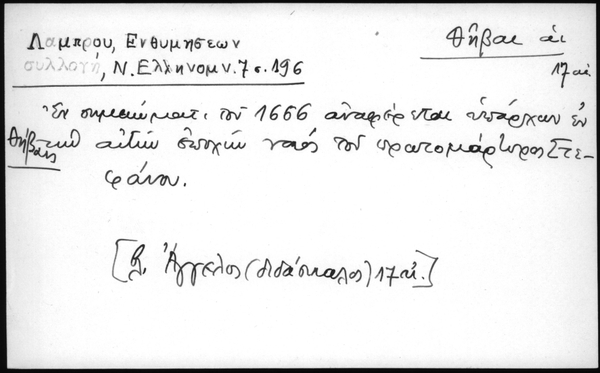 Λαμπρου, Ενθυμησεων
συλλογή, Ν. Ελληνομν. 7 σ. 196
Θῆβαι αἱ
17 αἰ.
Ἐν σημειώματι τοῦ 1666 ἀναφέρεται ὑπάρχων ἐν
Θήβαις κατὰ τὴν αὐτὴν ἐποχὴν ναὸς τοῦ πρωτομάρτυρος Στε-
φάνου.
[Β. Ἄγγελος (διδάσκαλος) 17 αἰ.]